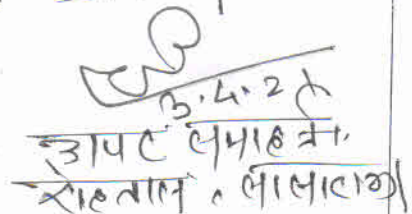 3.4.2
अपर समाहर्ता
रोहतास, सासाराम